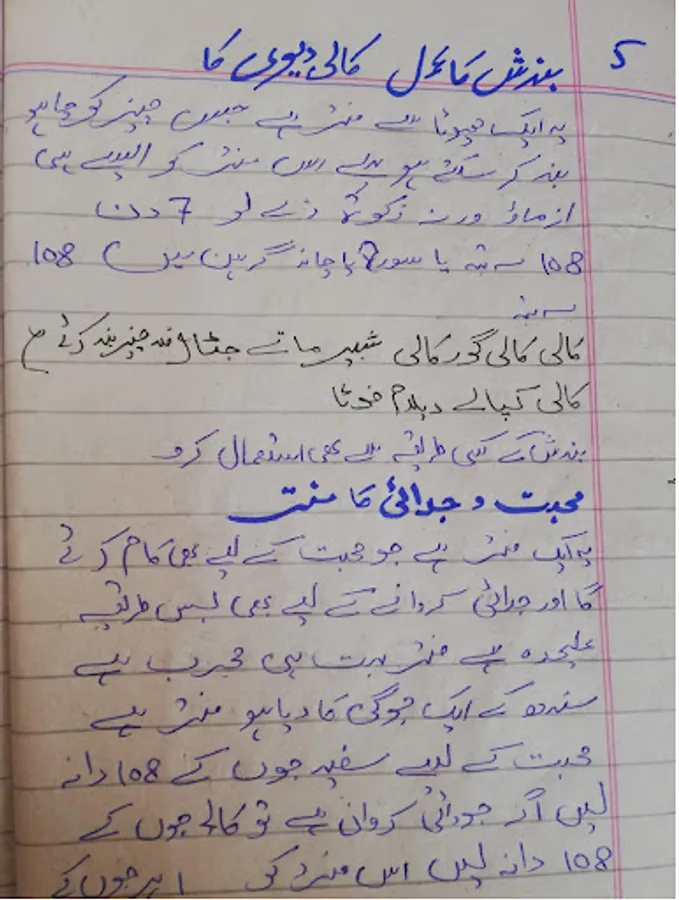 5 بندش کا عمل کالی دیوی کا
یہ ایک چھوٹا سے منتر ہے جس چیز کو چاہو
بند کر سکتے ہو اس منتر کو ایسے ہی
ازماؤ ورنہ زکوٰۃ دے لو 7 دن
108 مرتبہ یا سورج یا چاند گرہن میں 108
مرتبہ
کالی کالی گور کالی ماتے چیز بند کرئے
کالی کپالے
بندش کے کسی طریقے سے بھی استعمال کرو
محبت و جدائی کا منتر
یہ ایک منتر ہے جو محبت کے لیے بھی کام کرئے
گا اور جدائی کروانے کے لیے بھی بس طریقہ
علیحدہ ہے منتر بہت ہی مجرب ہے
سندھ کے ایک جوگی کا دیا ہو منتر ہے
محبت کے لیے سفید جوں کے 108 دانہ
لیں اگر جودائی کروانی ہے تو کالے جوں کے
108 دانہ لیں اس منتر کی ہر جوں کے